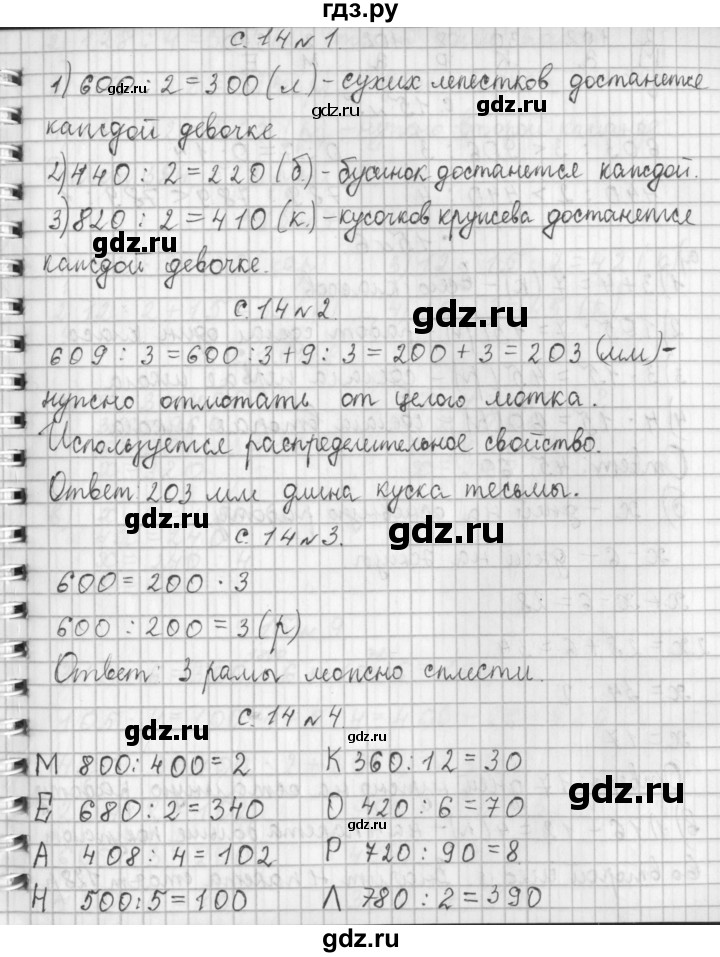 гдз.ру
с. 14 № 1.
1) 600 : 2 = 300 (л) - сухих лепестков достанется
каждой девочке
2) 440 : 2 = 220 (б) - бусинок достанется каждой.
3) 820 : 2 = 410 (к.) - кусочков кружева достанется
каждой девочке.
с. 14 № 2.
609 : 3 = 600 : 3 + 9 : 3 = 200 + 3 = 203 (мм) -
нужно отмотать от целого мотка.
Используется распределительное свойство.
Ответ: 203 мм длина куска тесьмы.
с. 14 № 3.
600 = 200 · 3
600 : 200 = 3 (р)
Ответ: 3 рамы можно сплести.
с. 14 № 4
М 800 : 400 = 2 К 360 : 12 = 30
Е 680 : 2 = 340 О 420 : 6 = 70
А 408 : 4 = 102 Р 720 : 90 = 8
Н 500 : 5 = 100 Л 780 : 2 = 390
gdz.ru
gdz.ru
gdz.ru
gdz.ru
gdz.ru
gdz.ru
gdz.ru
gdz.ru
gdz.ru
gdz.ru
gdz.ru
gdz.ru
gdz.ru